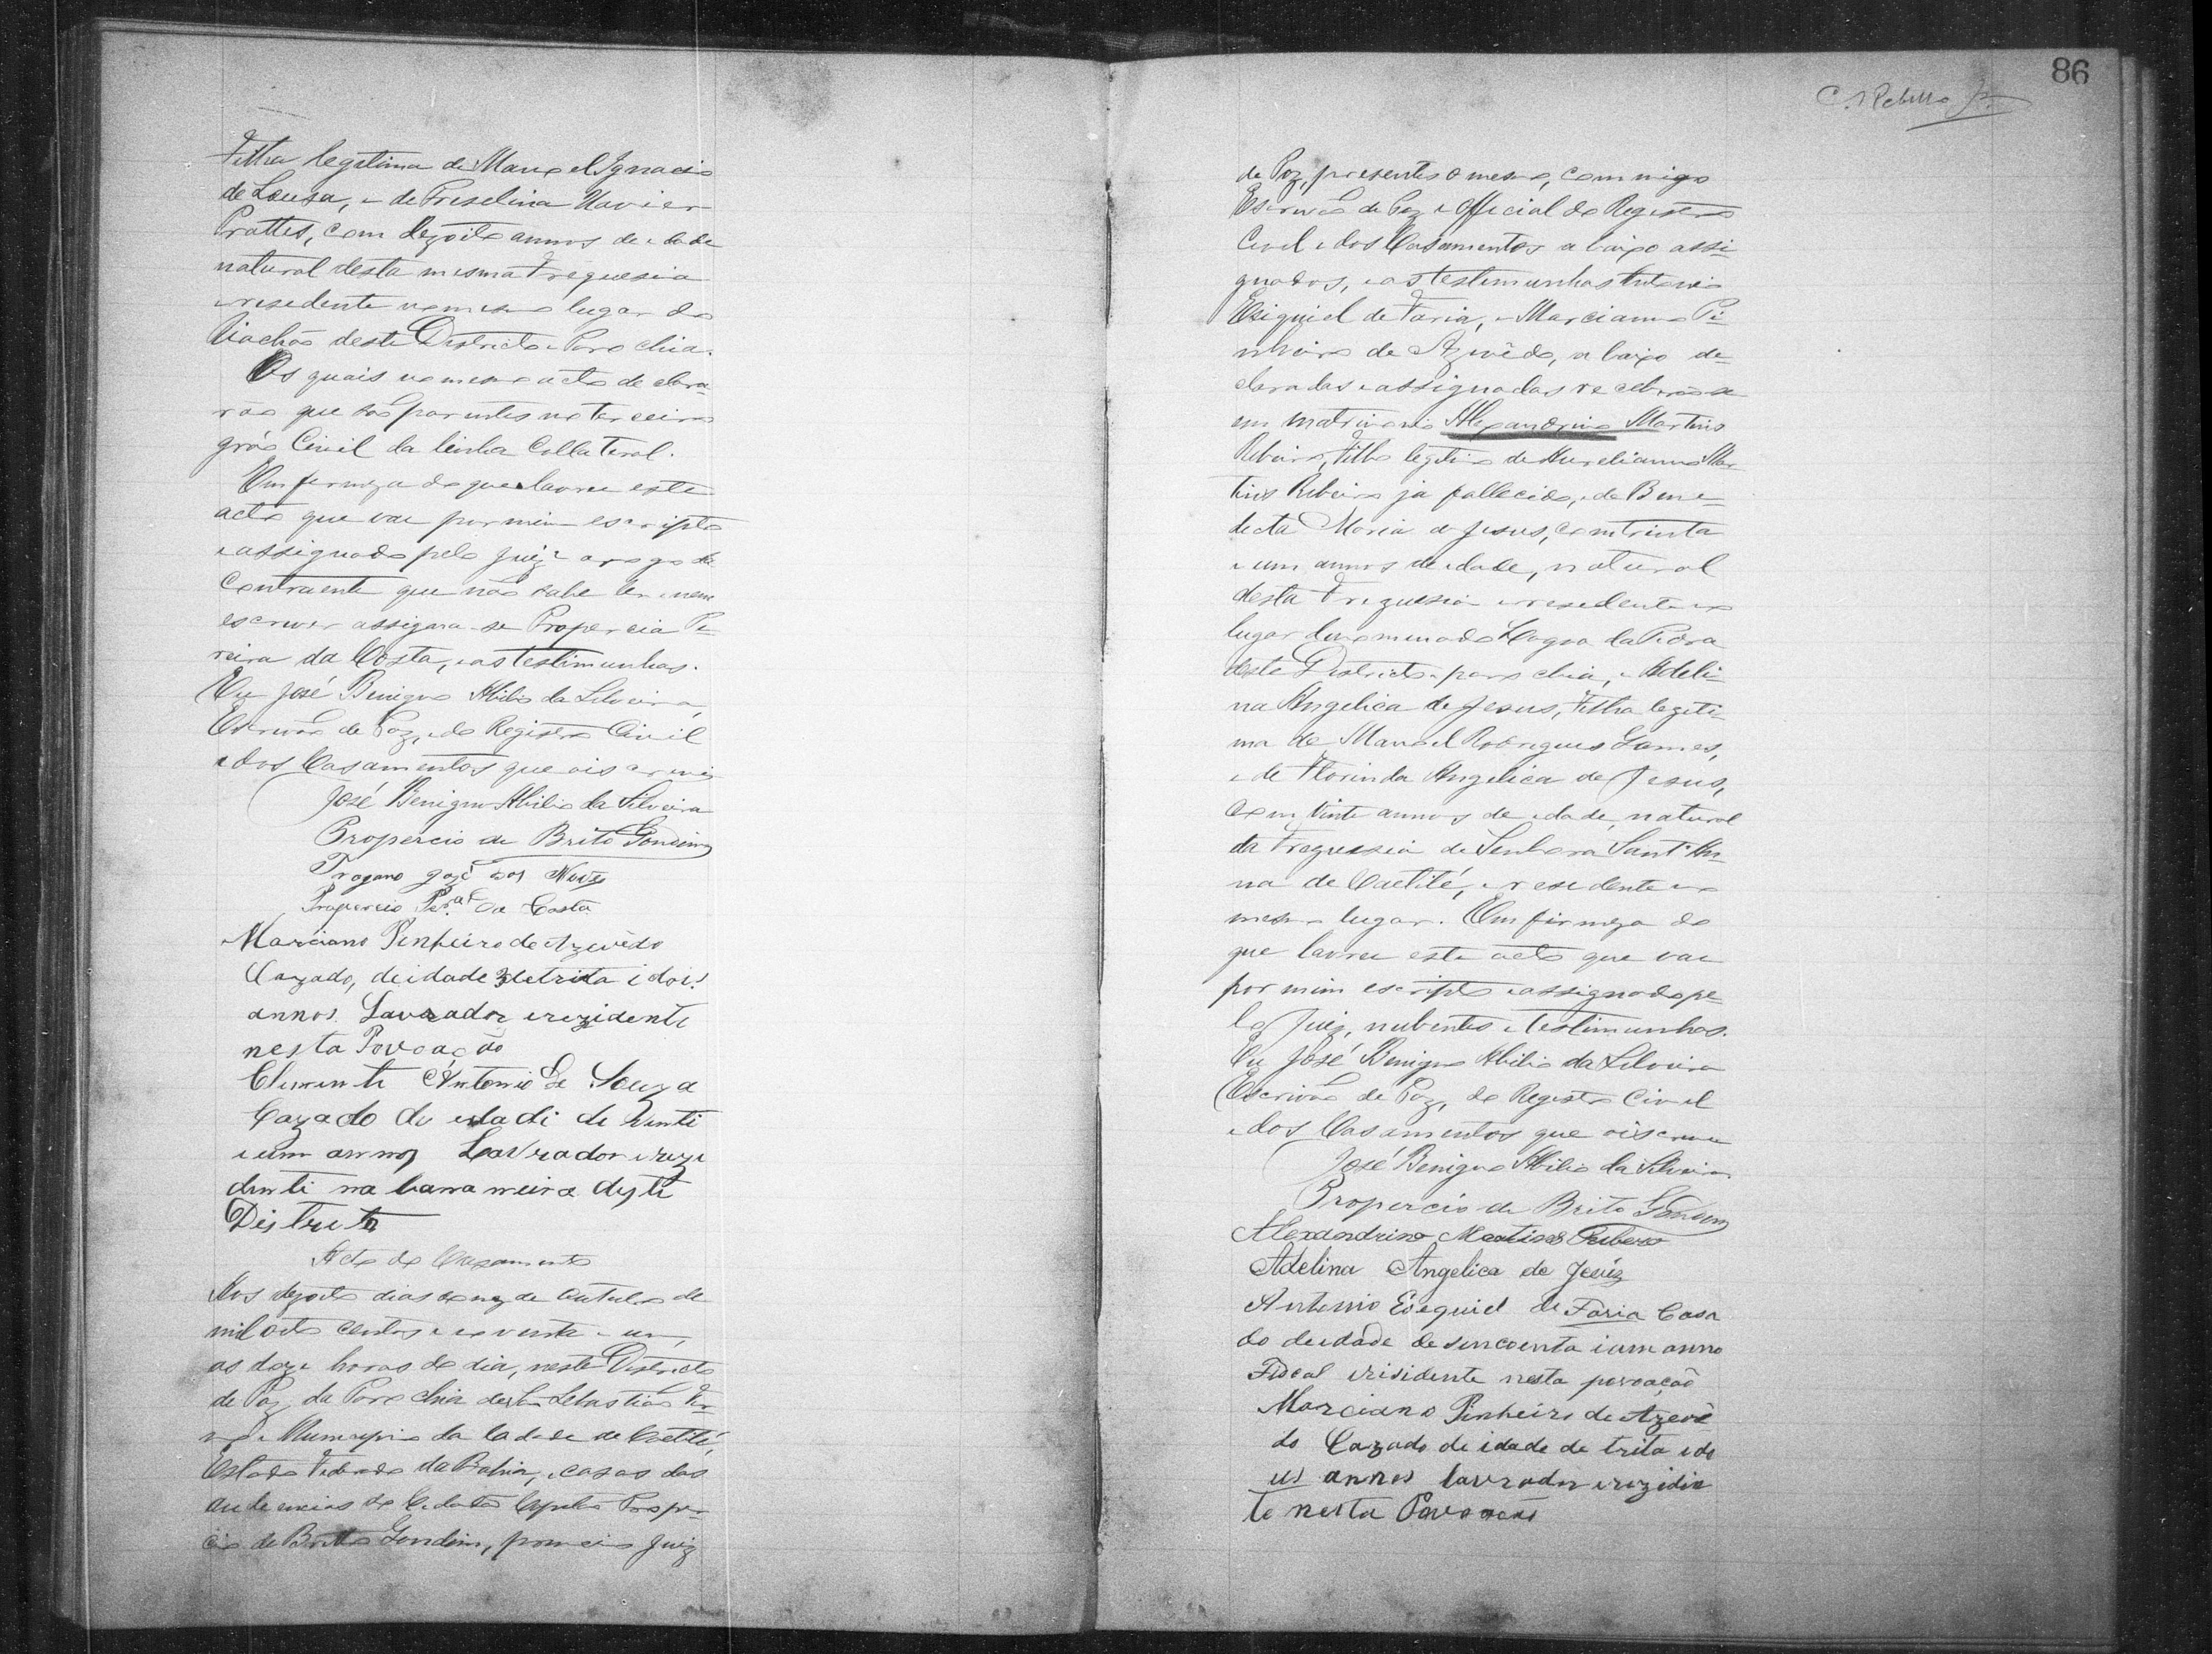 Filha legitima de Manoel Ignacio
de Souza, e de Preselina Xavier
Prattes, com dezoito annos de idade
natural desta mesma Freguesia
e resedente no mesmo lugar do
Riachão deste Districto e Parochia.
Os quais no mesmo acto declara-
rão que são parentes no terceiro
gráo Civil da linha Collateral.
Em firmeza do que lavrei este
acto que vae por mim escripto
e assignado pelo Juiz e a rogo da
Contraente que não sabe ler e nem
escrever assigna-se Propercia Pe-
reira da Costa, e as testimunhas.
Eu José Benigno Abilio da Silveira,
Escrivão de Paz, e do Registro Civil
e dos Casamentos que o iscrevi
José Benigno Abilio da Silveira
Propercio de Brito Gondim
Trajano José das Neves
Propercio Per.a da Costa
Marciano Pinheiro de Azevêdo
Cazado, de idade de trita i dois
annos. Lavrador erezidente
nesta Povoação
Clementi Antonio de Souza
Cazado de idadi di vinti
i um annos Lavrador irezi
denti na bananeira desti
Distrito
Acto do Casamento
Aos dezoito dias do mez de Outubro de
mil oito centos e noventa e um,
as doze horas do dia, neste Districto
de Paz da Parochia de São Sebastião
Municipio da Cidade de Caetité,
Estado Federado da Bahia, e casas das
audiencias do Cidadão Capitão Proper-
cio de Britto Gondim, primeiro Juiz
86
C. Rebello Jr.
de Paz, presentes o mesmo, commigo
Escrivão de Paz e Official do Registro
Civil e dos Casamentos abaixo assi-
gnados, e as testemunhas Antonio
Esiquiel de Faria, e Marcianno Pi-
nheiro de Azevêdo, abaixo de-
claradas e assignadas receberão-se
em matrimonio Alexandrino Martins
Ribeiro, Filho legitimo de Aurelianno Mar-
tins Ribeiro já fallecido, e de Bene-
decta Maria de Jesus, com trinta
e um annos de idade, natural
desta Freguesia e resedente no
lugar denominado Lagoa da Pedra
deste Districto e parochia, e Adeli-
na Angelica de Jesus, Filha legiti-
ma de Manoel Rodrigues Gomes,
e de Florinda Angelica de Jesus,
com vinte annos de idade, natural
da Freguesia de Senhora Sant'An-
na de Caetité, e resedente no
mesmo lugar. Em firmeza do
que lavrei este acto que vae
por mim escripto e assignado pe-
lo Juiz, nubentes e testimunhas.
Eu José Benigno Abilio da Silveira
Escrivão de Paz, do Registro Civil
e dos Casamentos que o iscrevi
José Benigno Abilio da Silveira
Propercio de Brito Gondim
Alexandrino Martins Ribero
Adelina Angelica de Jesúz
Antonio Esequiel de Faria Casa
do de idade de sincoenta i um anno
Fiscal irisidente nesta povoação
Marciano Pinheiro de Azevê
do Cazado de idade de trita e do
us annos lavrador erezidin
te nesta Povoação